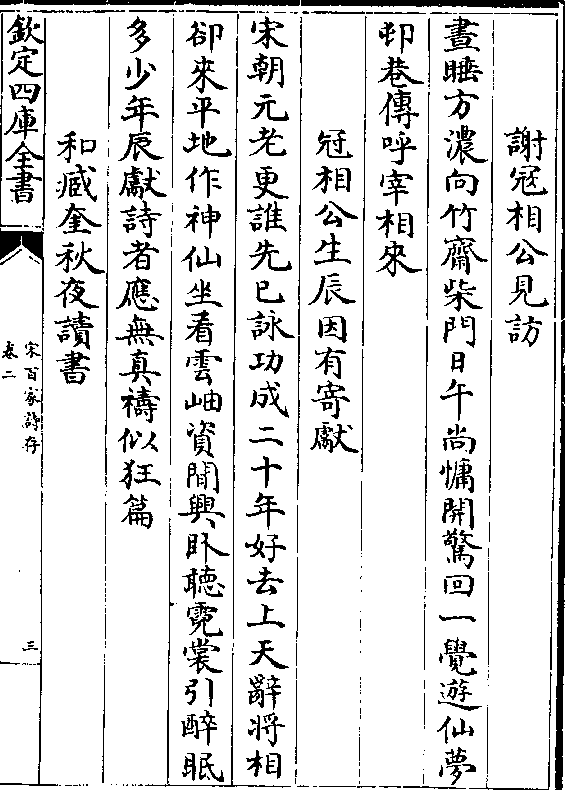 謝寇相公見訪
晝睡方濃向竹齋柴門日午尚慵開驚回一覺遊仙夢
邨巷傳呼宰相來
寇相公生辰因有寄獻
宋朝元老更誰先已詠功成二十年好去上天辭將相
卻來平地作神仙坐看雲岫資閒興臥聽霓裳引醉眠
多少年辰獻詩者應無真禱似狂篇
和臧奎秋夜讀書
欽定四庫全書
宋百家詩存
卷二
三